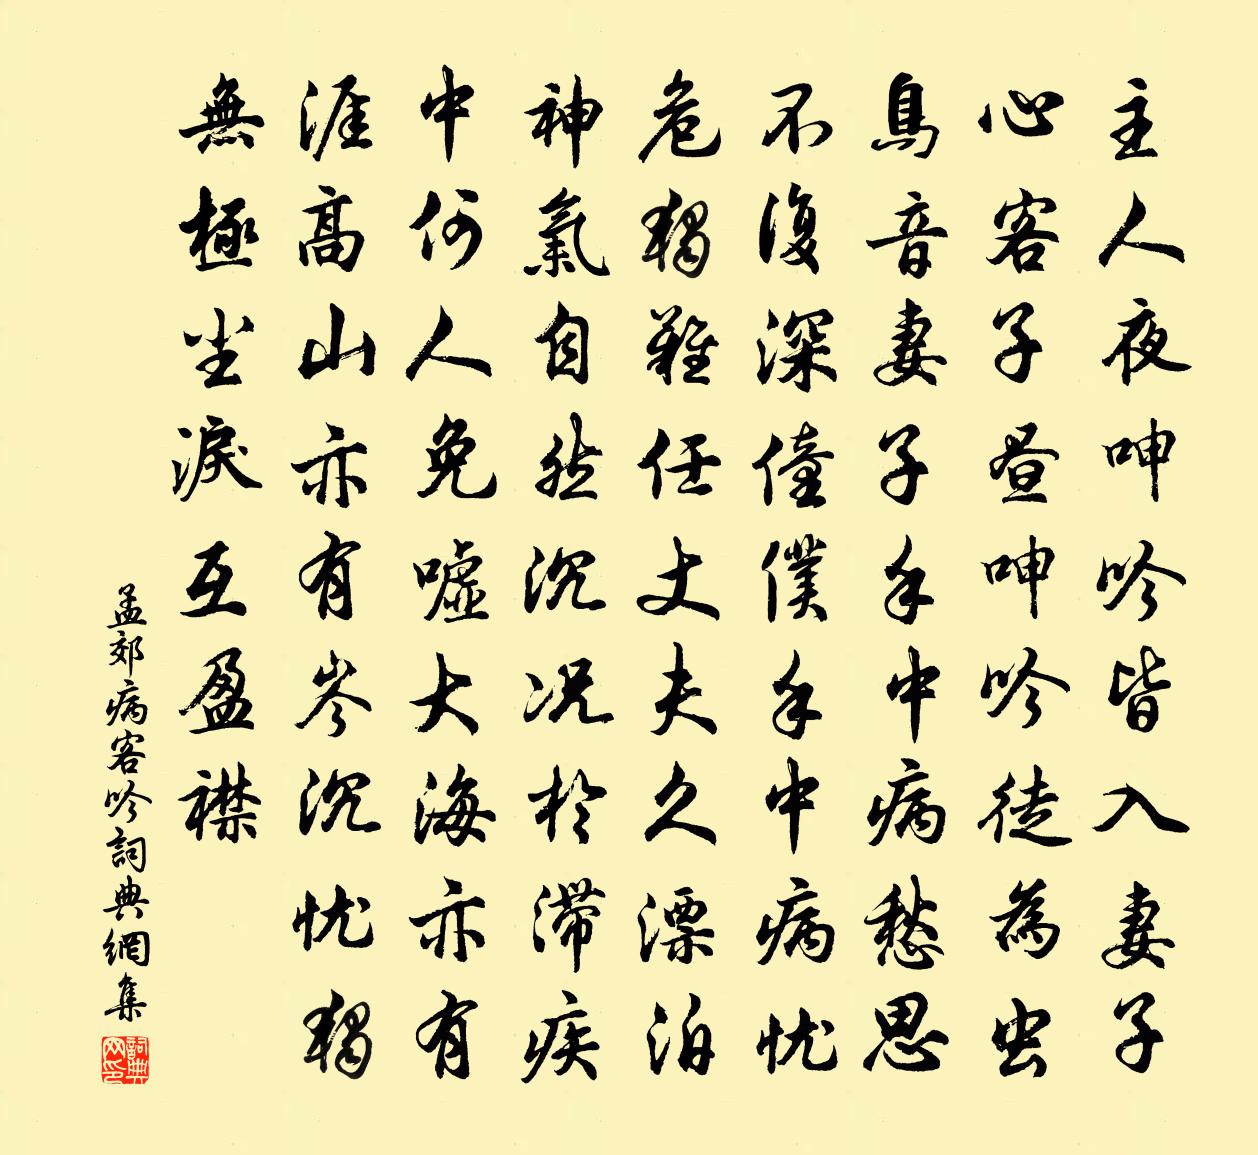 主人夜呻吟皆入妻子
心客子昼呻吟徒為虫
鳥音妻子手中病愁思
不復深僮僕手中病忧
危獨難任丈夫久漂泊
神氣自然沉况於滯疾
中何人免嘘大海亦有
涯高山亦有岑沉忧獨
無極坐淚互盈襟
孟郊病客吟詞典網集
詞典网印